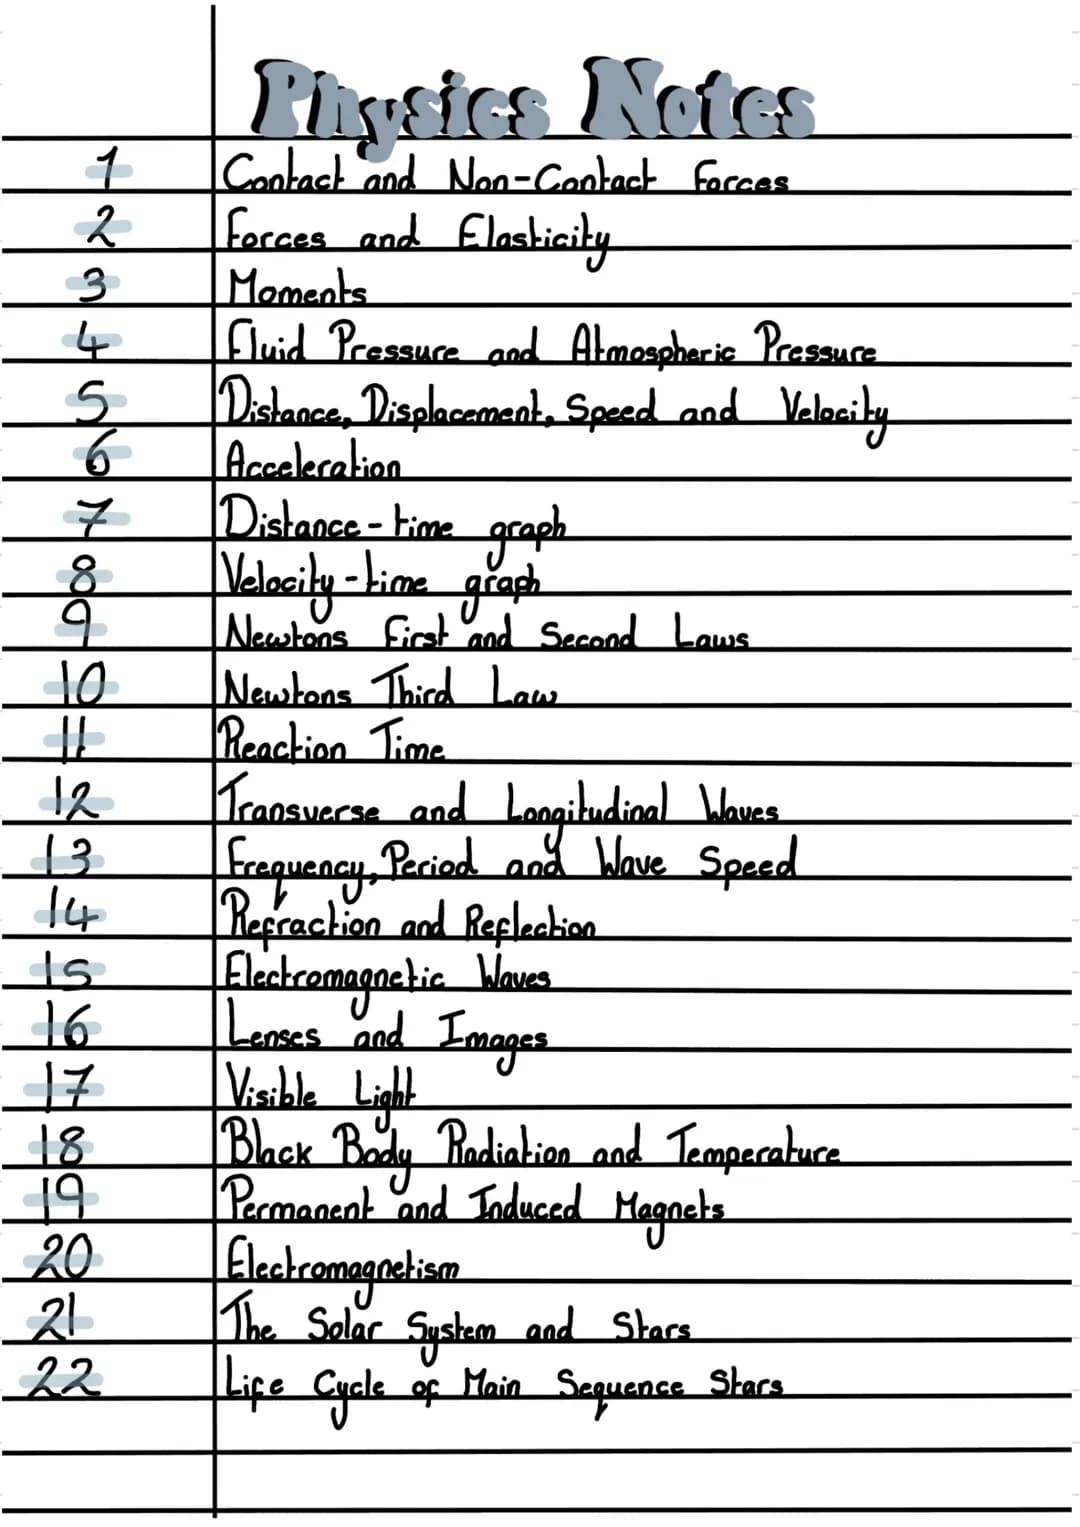 Physics Notes
1 Contact and Non-Contact Forces
2 Forces and Elasticity
3 Moments
4 Fluid Pressure and Atmospheric Pressure
5 Distance, Displacement, Speed and Velocity
6 Acceleration
7 Distance-time graph
8 Velocity-time graph
9 Newtons First and Second Laws
10 Newtons Third Law
11 Reaction Time
12 Transverse and Longitudinal Waves
13 Frequency, Period and Wave Speed
14 Refraction and Reflection
15 Electromagnetic Waves
16 Lenses and Images
17 Visible Light
18 Black Body Radiation and Temperature
19 Permanent and Induced Magnets
20 Electromagnetism
21 The Solar System and Stars
22 Life Cycle of Main Sequence Stars